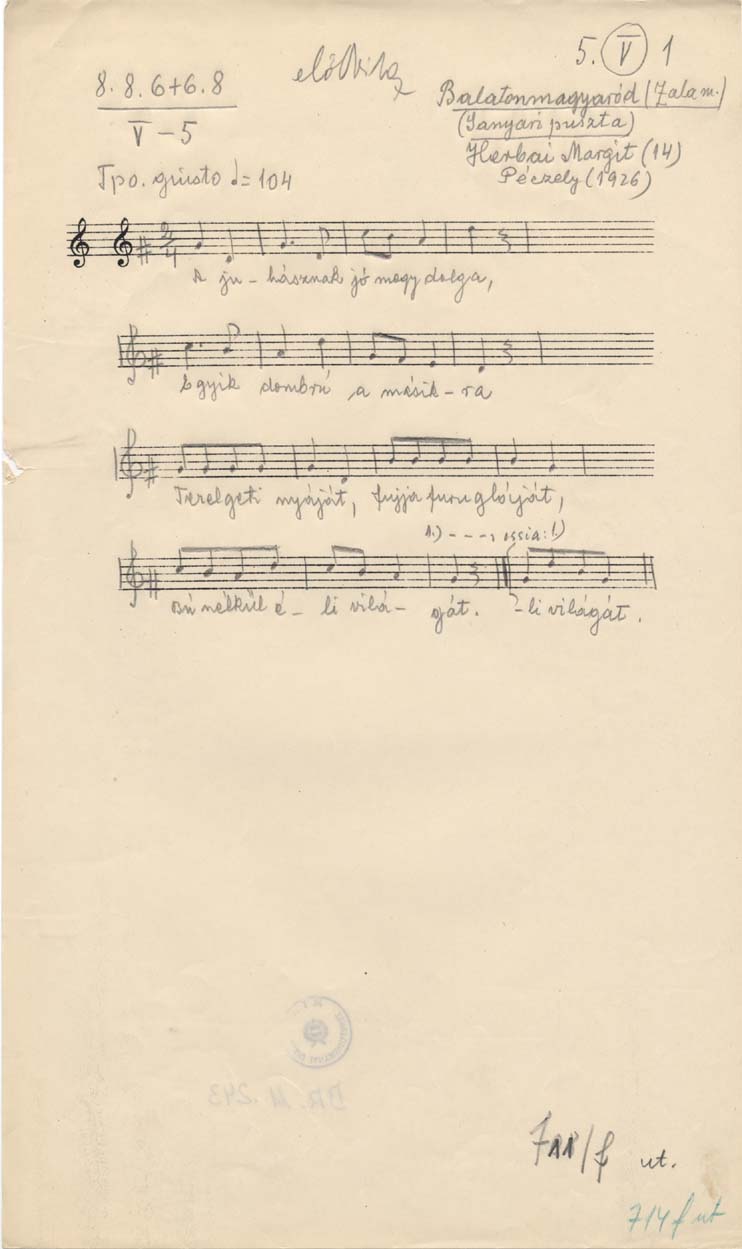 5. V 1
8. 8. 6+6. 8
V – 5
Balatonmagyaród (Zala m.)
(Kanyari puszta)
Herbai Margit (14)
Péczely (1926)
Tpo. giusto ♩= 104
2/4
A ju - hásznak jó mogy dolga,
Egyik dombrú a másik - ra
Terelgeti nyáját, fujja furuglóját,
1.) - - - , ossia: 1.)
Bú nélkül é - li vilá - gát. -li világát.
BR. M. 243
711/f ut.
714 f ut